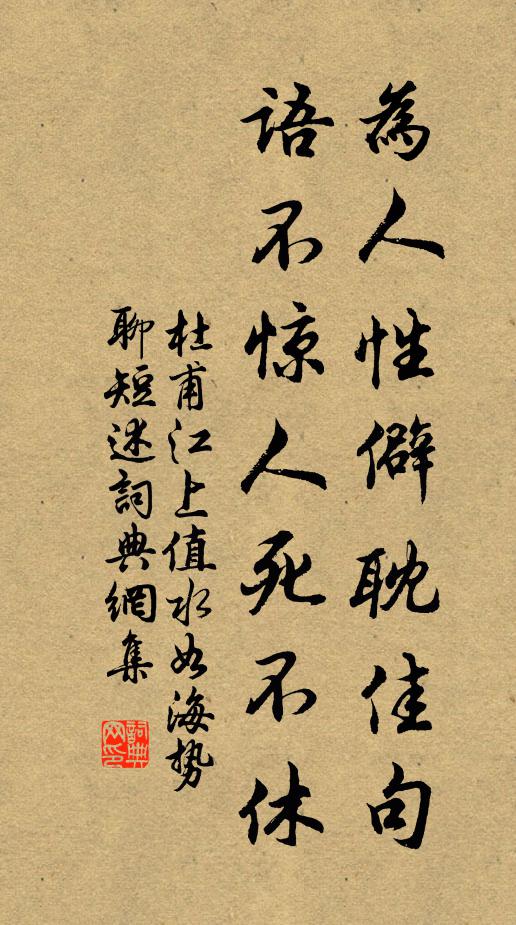 為人性僻耽佳句
語不惊人死不休
杜甫江上值水如海勢
聊短述詞典網集
詞典网印